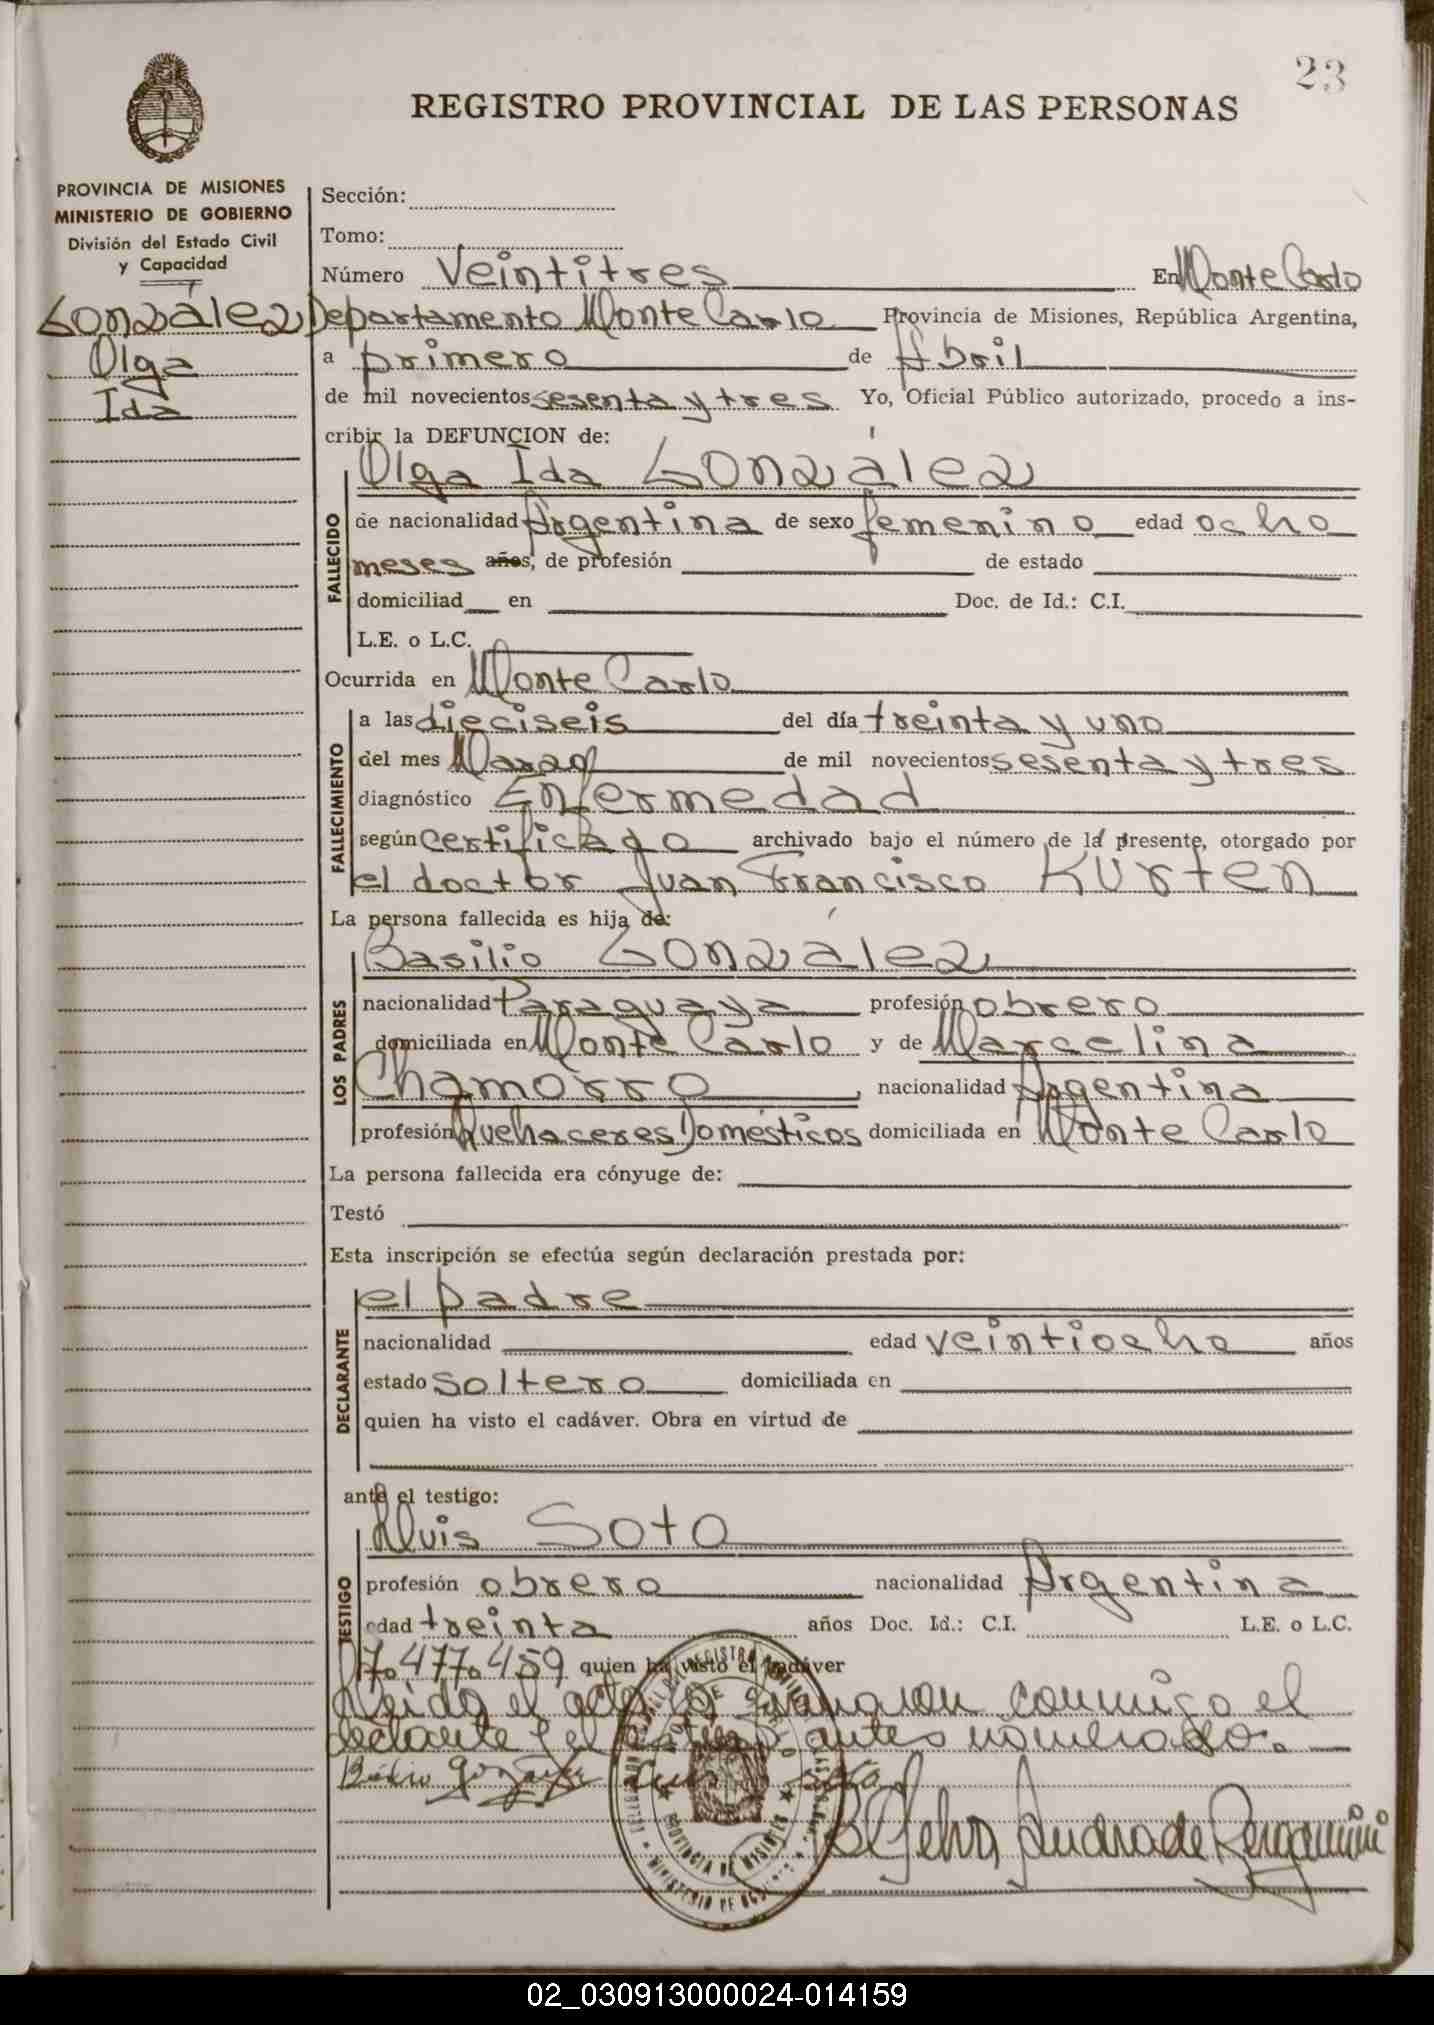 23
REGISTRO PROVINCIAL DE LAS PERSONAS
PROVINCIA DE MISIONES
MINISTERIO DE GOBIERNO
División del Estado Civil
y Capacidad
González
Olga
Ida
Sección:
Tomo:
Número Veintitres En Monte Carlo
Departamento Monte Carlo Provincia de Misiones, República Argentina,
a primero de Abril
de mil novecientos sesenta y tres Yo, Oficial Público autorizado, procedo a ins-
cribir la DEFUNCION de:
FALLECIDO
Olga Ida González
de nacionalidad Argentina de sexo femenino edad ocho
meses años, de profesión de estado
domiciliad en Doc. de Id.: C.I.
L.E. o L.C.
Ocurrida en Monte Carlo
FALLECIMIENTO
a las dieciseis del día treinta y uno
del mes Marzo de mil novecientos sesenta y tres
diagnóstico Enfermedad
según certificado archivado bajo el número de la presente, otorgado por
el doctor Juan Francisco Kurten
La persona fallecida es hija de:
LOS PADRES
Basilio González
nacionalidad Paraguaya profesión obrero
domiciliada en Monte Carlo y de Marcelina
Chamorro, nacionalidad Argentina
profesión Quehaceres Domésticos domiciliada en Monte Carlo
La persona fallecida era cónyuge de:
Testó
Esta inscripción se efectúa según declaración prestada por:
DECLARANTE
el padre
nacionalidad edad veintiocho años
estado soltero domiciliada en
quien ha visto el cadáver. Obra en virtud de
ante el testigo:
TESTIGO
Luis Soto
profesión obrero nacionalidad Argentina
edad treinta años Doc. Id.: C.I. L.E. o L.C.
7.477.459 quien ha visto el cadáver
Leido el acta la firmaron conmigo el
declarante y el testigo antes nombrado.
PROVINCIA DE MISIONES
MINISTERIO DE GOBIERNO
Selva Andrade Bergamini
02_030913000024-014159